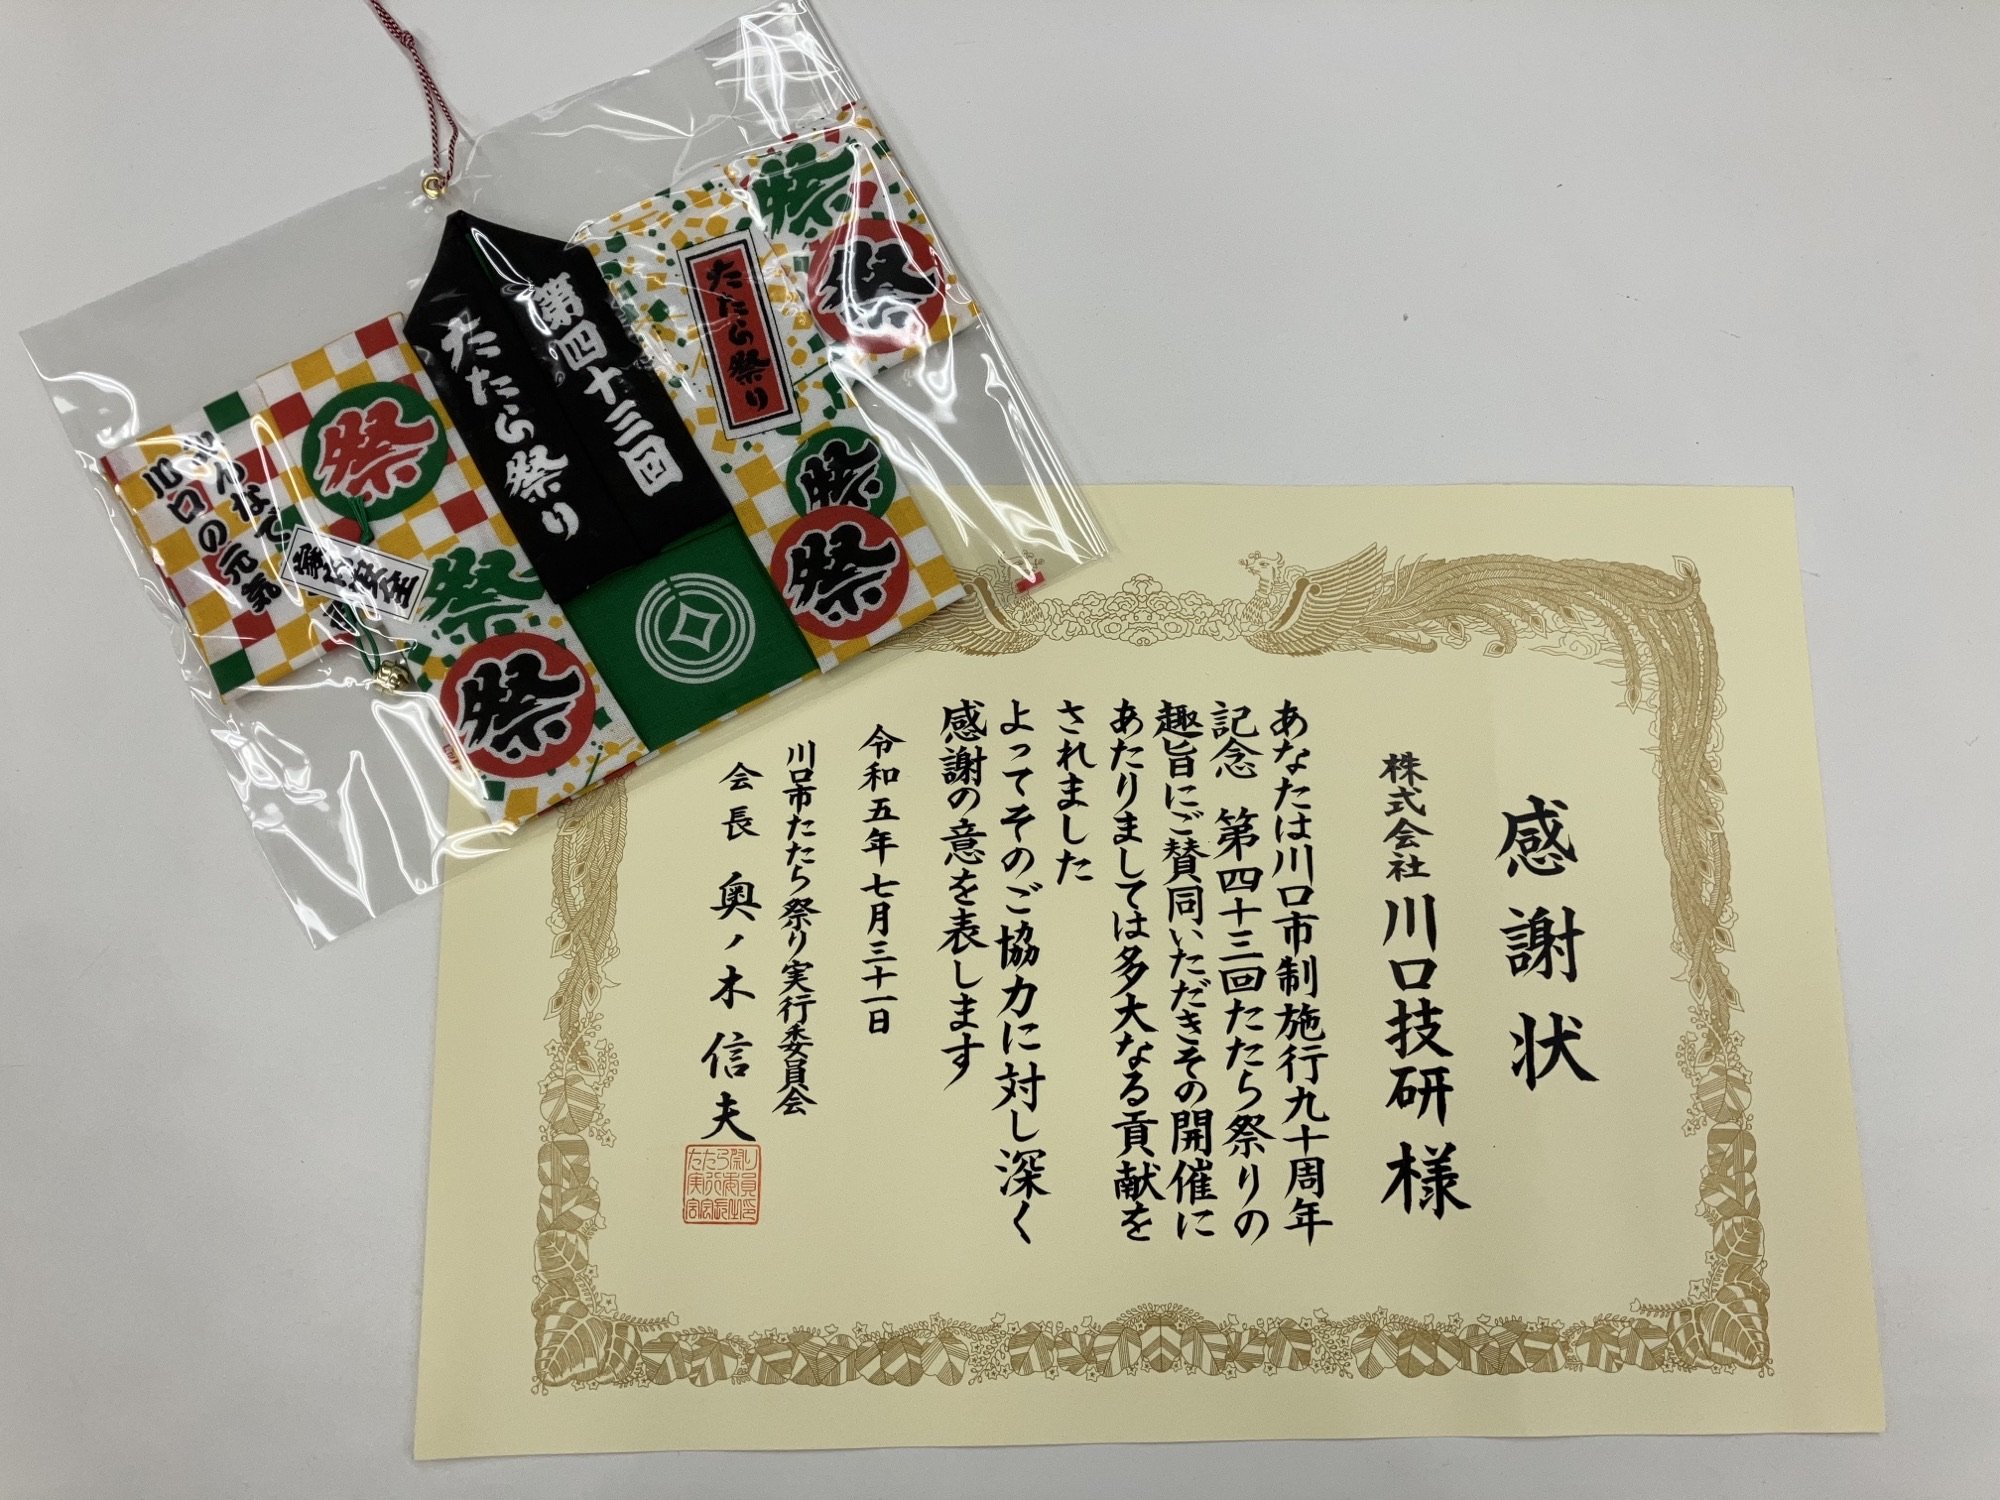 感謝状
株式会社 川口技研 様
あなたは川口市制施行九十周年
記念 第四十三回たたら祭りの
趣旨にご賛同いただきその開催に
あたりましては多大なる貢献を
されました
よってそのご協力に対し深く
感謝の意を表します
令和五年七月三十一日
川口市たたら祭り実行委員会
会長 奥ノ木信夫
たたら祭り
実行委員
会会長之印
第四十三回
たたら祭り
たたら祭り
祭
祭
祭
祭
祭
祭
祭
みんなで
川口の元気